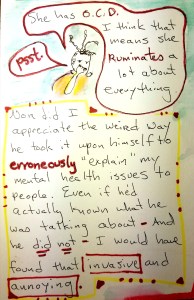 She has O.C.D.
I think that
means she
Ruminates a
lot about
everything
psst.
Non did I
appreciate the weird way
he took it upon himself to
erroneously "explain" my
mental health issues to
people. Even if he'd
actually known what he
was talking about - And
he did not - I would have
found that invasive and
annoying.